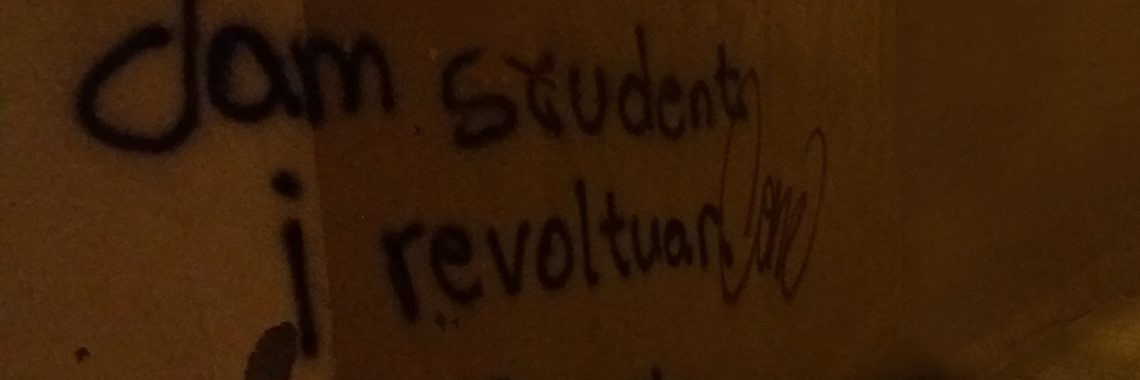 Jam student
i revoltuar